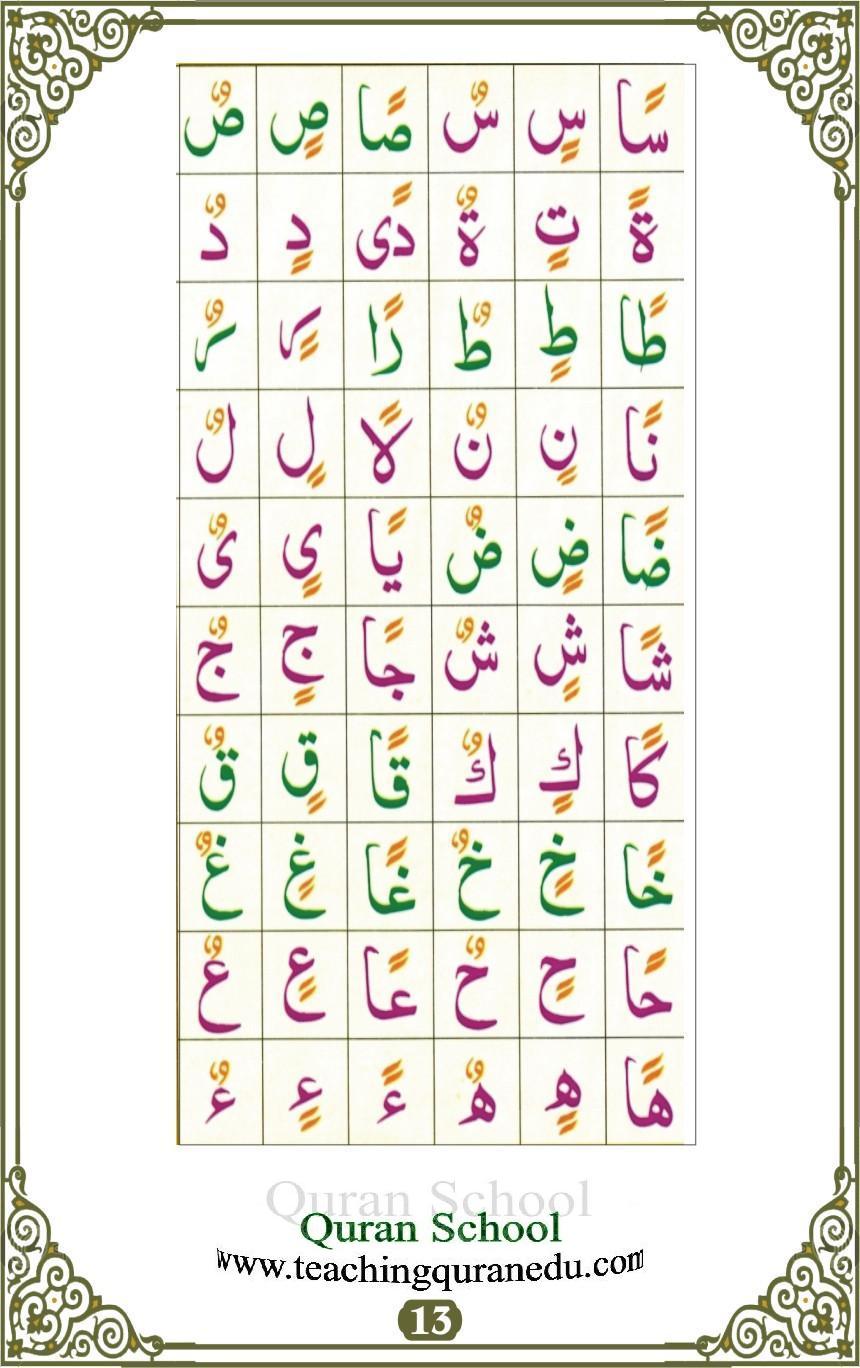 سًا سٍ سٌ صًا صٍ صٌ
ةً تٍ ةٌ دًى دٍ دٌ
طًا طٍ طٌ رًا رٍ رٌ
نًا نٍ نٌ لًا لٍ لٌ
ضًا ضٍ ضٌ يًا یٍ یٌ
شًا شٍ شٌ جًا جٍ جٌ
كًا كٍ كٌ قًا قٍ قٌ
خًا خٍ خٌ غًا غٍ غٌ
حًا حٍ حٌ عًا عٍ عٌ
هًا هٍ هٌ ءً ءٍ ءٌ
Quran School
Quran School
www.teachingquranedu.com
13